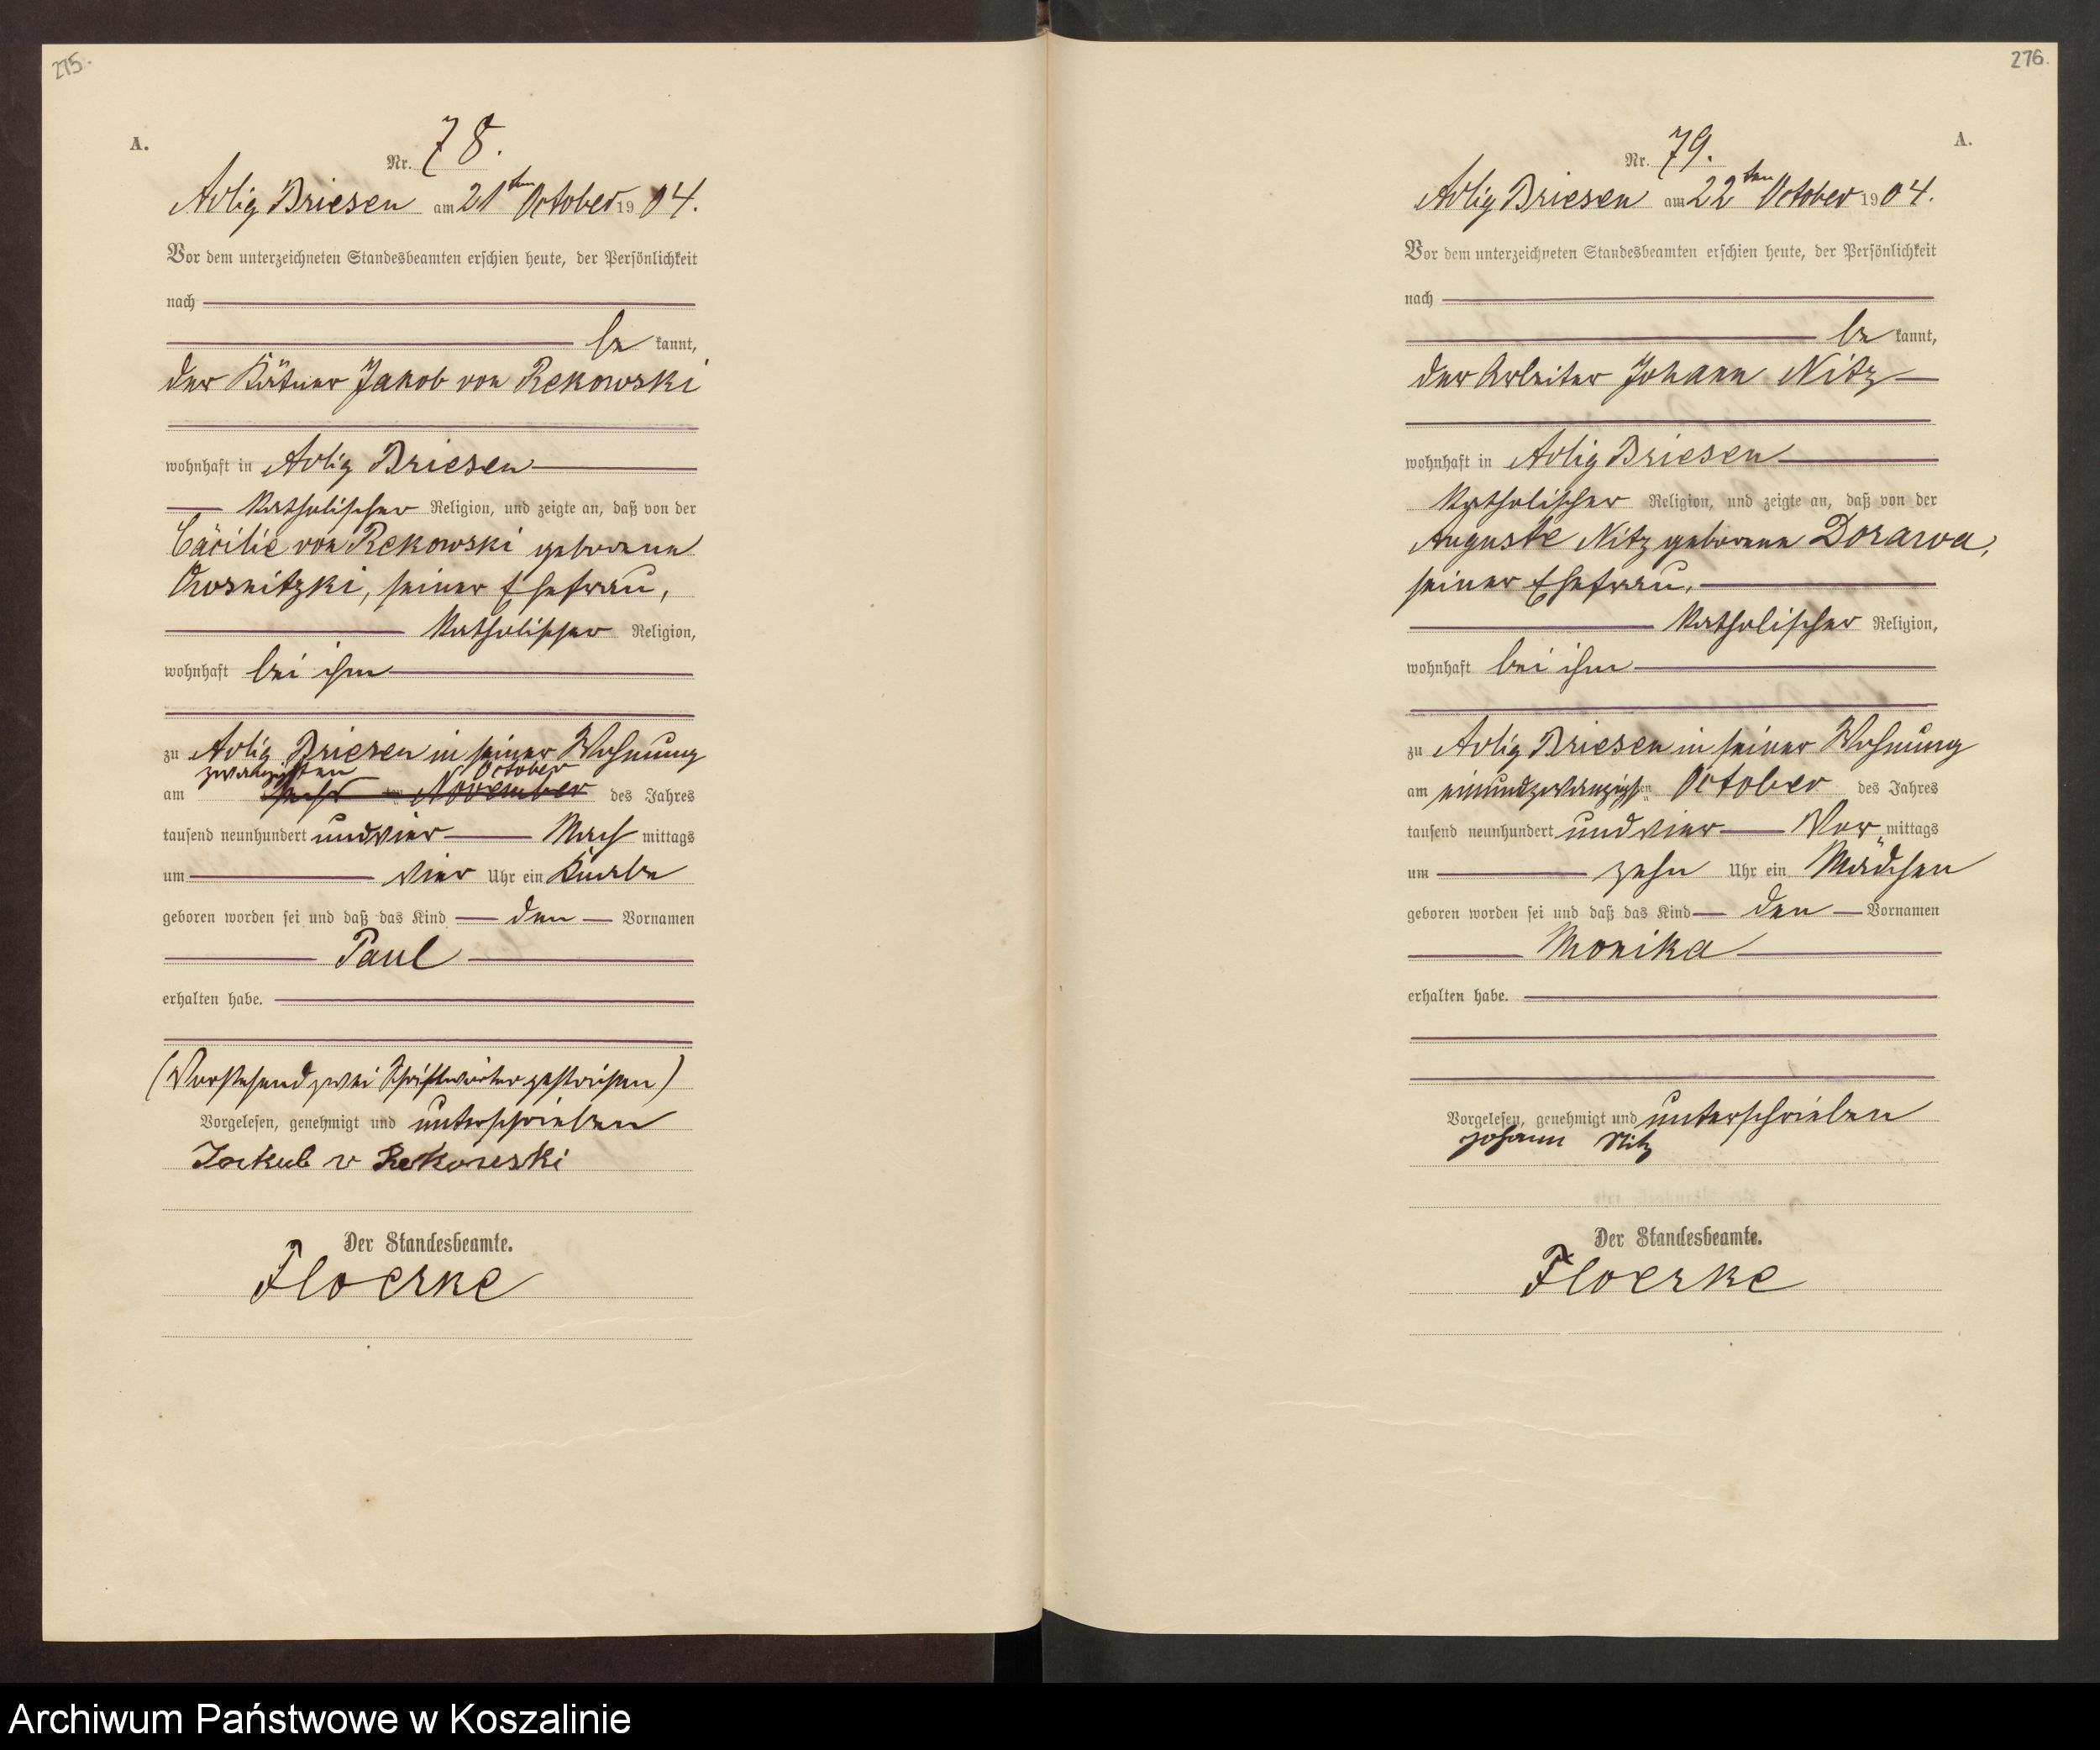 275.
A.
Nr. 78.
Adlig Briesen am 21ten October 1904.
Vor dem unterzeichneten Standesbeamten erschien heute, der Persönlichkeit
nach
be kannt,
der Kätner Jakob von Rekowski
wohnhaft in Adlig Briesen
katholischer Religion, und zeigte an, daß von der
Cäcilie von Rekowski geborene
seiner Ehefrau,
katholischer Religion,
wohnhaft bei ihm
zu Adlig Briesen in seiner Wohnung
zwanzigsten October
am November des Jahres
tausend neunhundert und vier Nach mittags
um vier Uhr ein Knabe
geboren worden sei und daß das Kind den Vornamen
Paul
erhalten habe.
(Vorstehend zwei Schriftwörter gestrichen)
Vorgelesen, genehmigt und unterschrieben
Jakub v Rekowski
Der Standesbeamte.
Floerke
276.
A.
Nr. 79.
Adlig Briesen am 22ten October 1904.
Vor dem unterzeichneten Standesbeamten erschien heute, der Persönlichkeit
nach
be kannt,
der Arbeiter Johann Nitz
wohnhaft in Adlig Briesen
katholischer Religion, und zeigte an, daß von der
Auguste Nitz geborene Dorawa,
seiner Ehefrau,
katholischer Religion,
wohnhaft bei ihm
zu Adlig Briesen in seiner Wohnung
am einundzwanzigsten October des Jahres
tausend neunhundert und vier Vor mittags
um zehn Uhr ein Mädchen
geboren worden sei und daß das Kind den Vornamen
Monika
erhalten habe.
Vorgelesen, genehmigt und unterschrieben
Johann Nitz
Der Standesbeamte.
Floerke
Archiwum Państwowe w Koszalinie